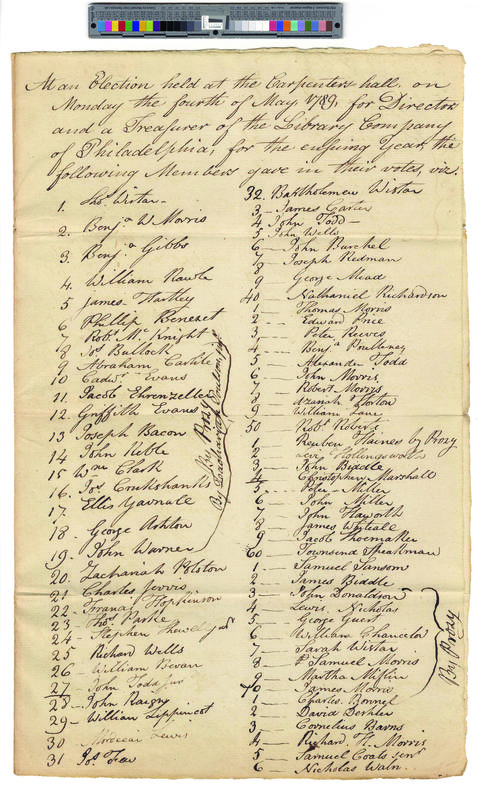 At an Election held at the Carpenters hall, on
Monday the fourth of May, 1789, for Directors
and a Treasurer of the Library Company
of Philadelphia, for the ensuing Year, the
following Members gave in their votes, viz.
1. Thos. Wistar
2. Benja. W Morris
3. Benja. Gibbs
4. William Rawle
5 James Hartley
6 Phillip Benezet
7 Robt. Mc Knight
8 Jos. Bullock
9 Abraham Carlile
10 Cadwr. Evans
11. Jacob Ehrenzeller
12. Griffith Evans
13 Joseph Bacon
14 John Kible
15 Wm. Clark
16. Jos. Crukshank
17. Ellis Yarnall
18. George Ashton
19. John Warner
By Proxy
By Zachariah Poulson junr.
20. Zachariah Poulson
21 Charles Jervis
22 Francis Hopkinson
23 Thos. Parke
24 Stephen Shewell junr.
25 Richard Wells
26 William Bevan
27 John Todd Junr
28 John Kaighn
29 William Lippincot
30 Lewis
31 Jos.
32. Bartholomew Wistar
3 James Carter
4 John Todd
5 John Wells
6 John Burchel
7 Joseph Redman
8
9 George Mead
40 Nathaniel Richardson
1 Thomas Morris
2 Edward Price
3 Peter Reeves
4 Benja. Poultney
5 Alexander Todd
6 John Morris
7 Robert Morris
8 Azariah Horton
9 William Lane
50 Robt. Roberts
1 Reuben Haines by Proxy
2 Levi Hollingsworth
3 John Biddle
4 Christopher Marshall
5 Peter Miller
6 John Miller
7 John Haworth
8 James Whiteall
9 Jacob Shoemaker
60 Townsend Speakman
1 Samuel Sansom
2 James Biddle
3 John Donaldson
4 Lewis Nicholas
5 George Guest
6 William Chancelor
7 Sarah Wistar
8 Samuel Morris
9 Martha Mifflin
70 James Morris
By Proxy
1 Charles Bonnel
2 David Deshler
3 Cornelius Barns
4 Richard H. Morris
5 Samuel Coats senr.
6 Nicholas Waln.